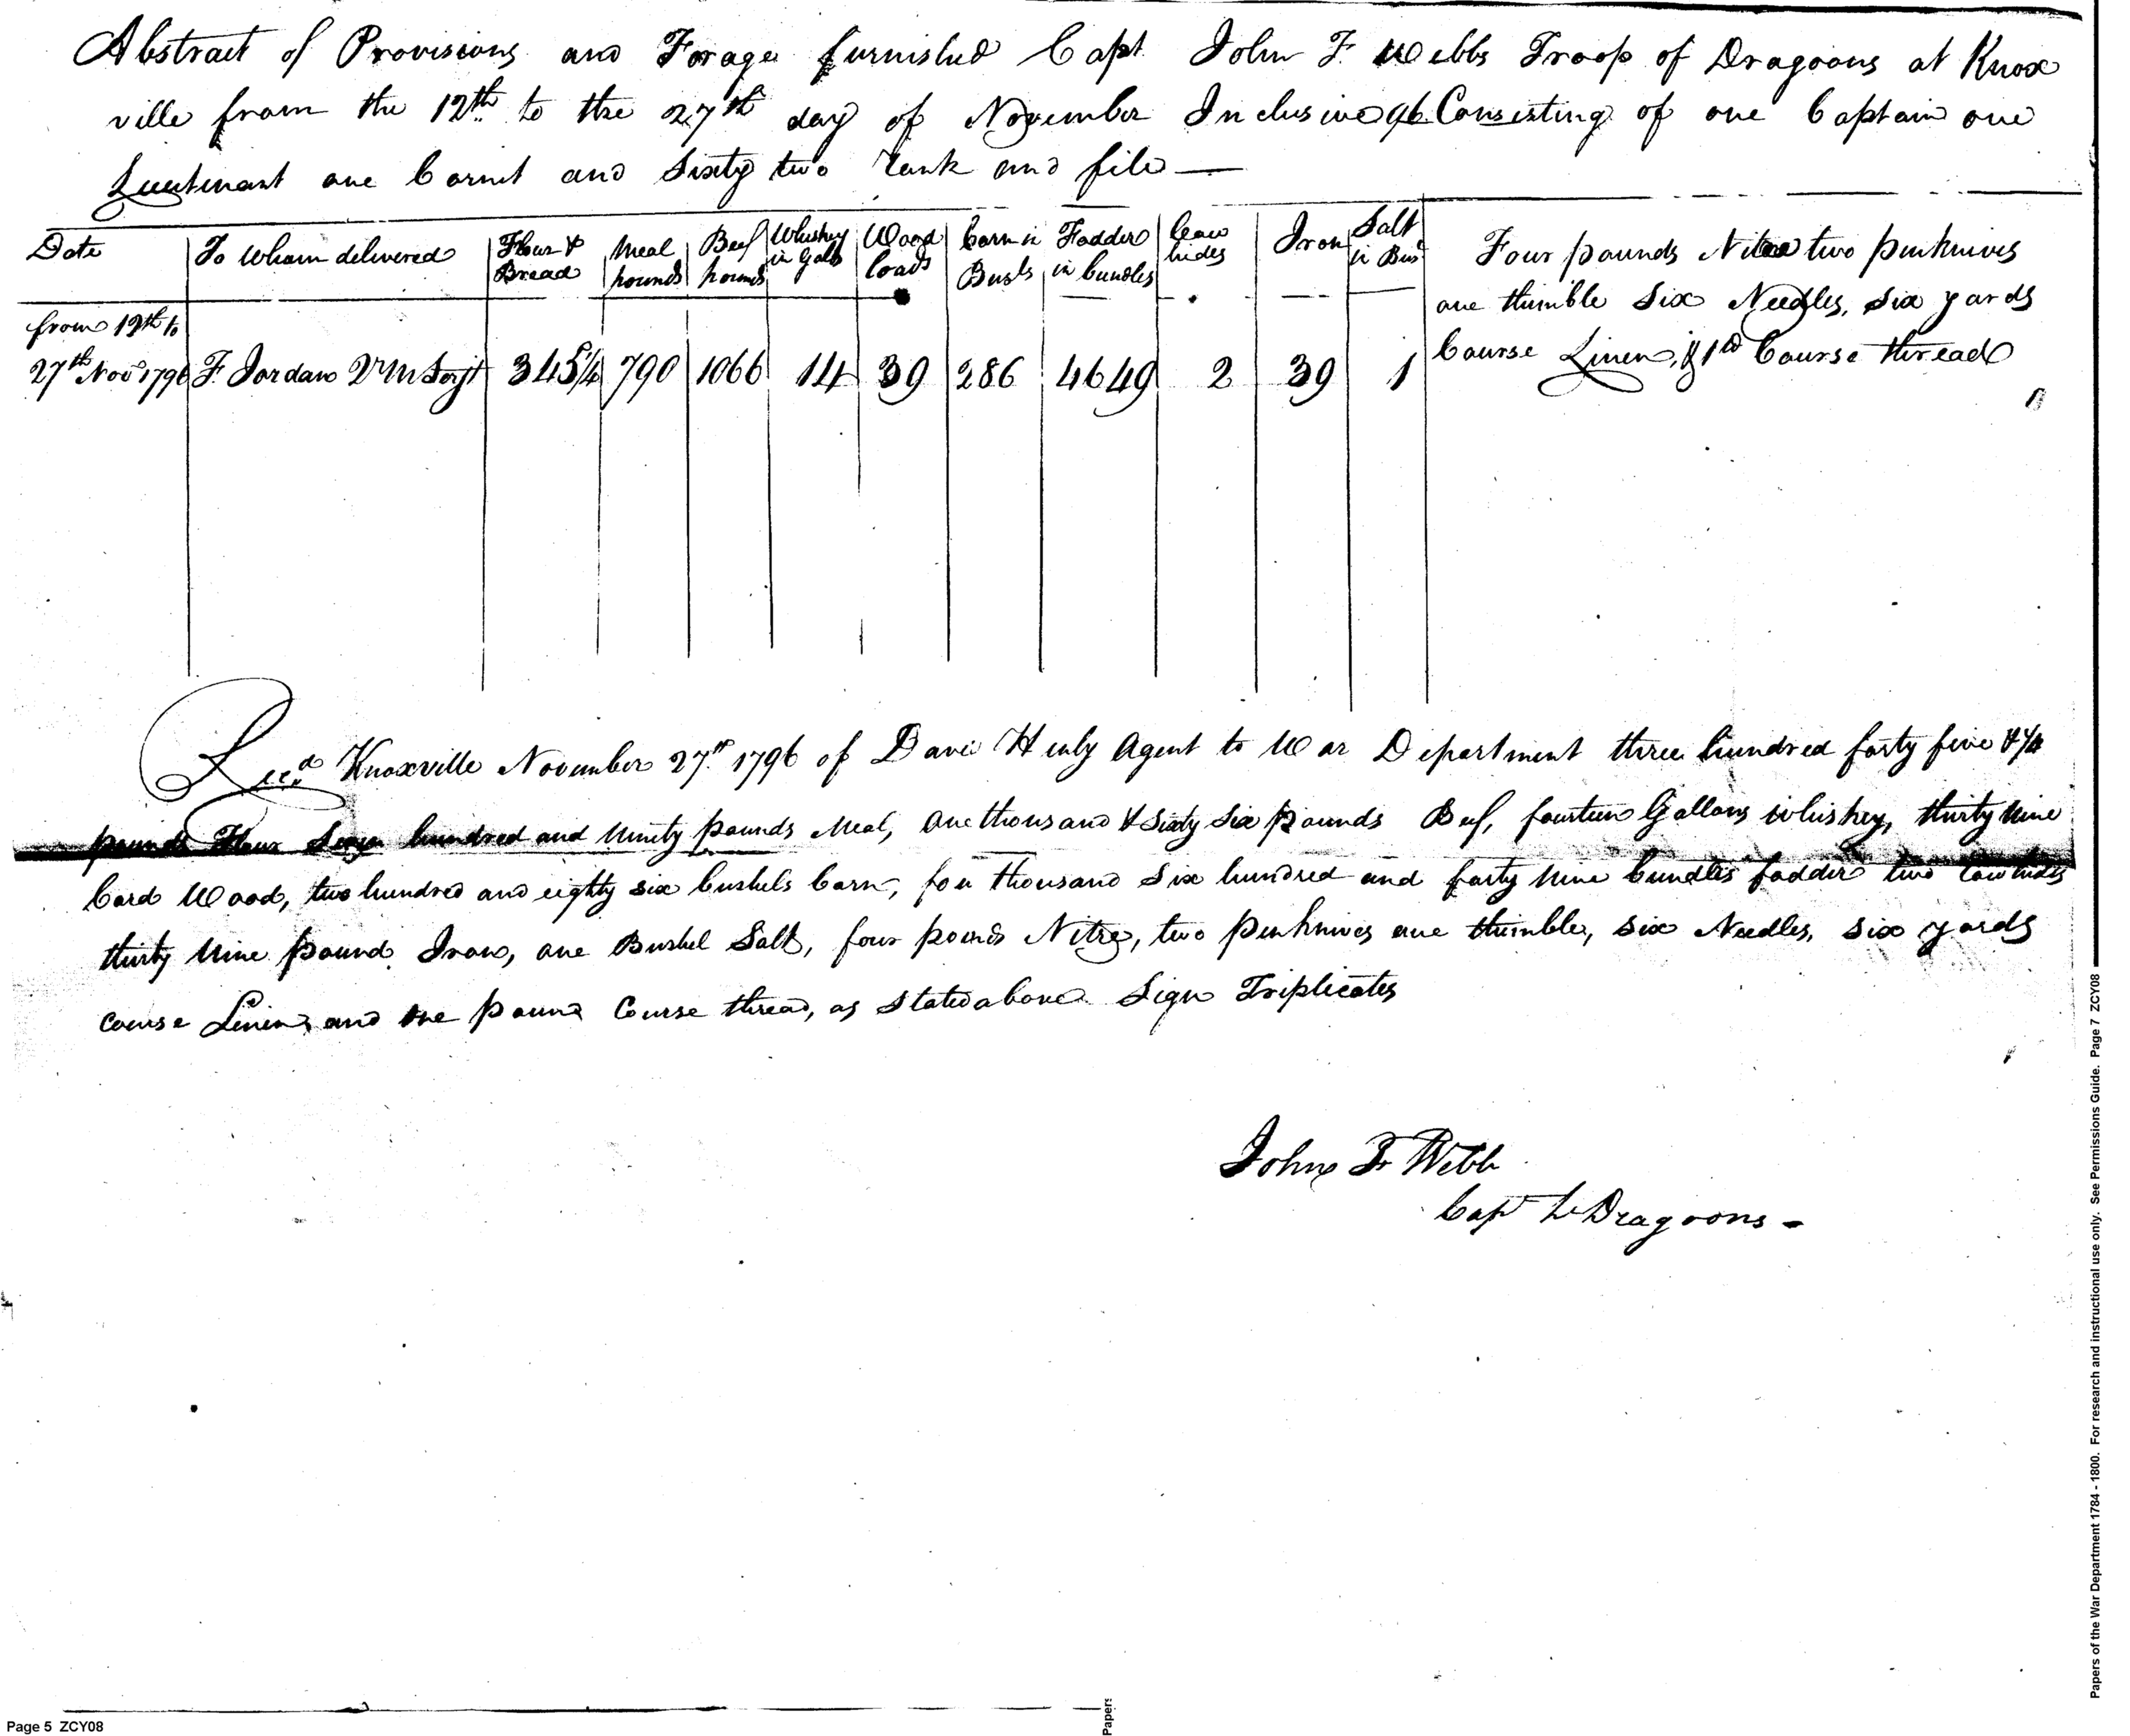 Abstract of Provisions and Forage furnished Capt. John F. Webbs Troop of Dragoons at Knox
ville from the 12th to the 27th day of November Inclusive 96. Consisting of one Captain one
Lieutenant one Cornet and Sixty two rank and file —
Date | To Whom delivered | Flour & Bread | Meal pounds | Beef pounds | Whiskey in Galls | Wood loads | Corn in Bushs | Fodder in bundles | Cow hides | Iron | Salt in Bus | Four pounds Nitre two penknives
one thimble Six Needles, six yards
Course Linen, & 1 lb Course thread
from 12th to
27th Nov 1796 | F. Jordan Q M Serjt | 345 1/4 | 790 | 1066 | 14 | 39 | 286 | 4649 | 2 | 39 | 1
Recd Knoxville November 27th 1796 of David Henly Agent to War Department three hundred forty five & 1/4
pounds Flour Seven hundred and Ninety pounds Meal, One thousand & Sixty Six pounds Beef, fourteen Gallons whiskey, thirty Nine
Cord Wood, two hundred and eighty six bushels Corn, four thousand Six hundred and forty Nine bundles fodder two Cow hides
thirty Nine pound Iron, one Bushel Salt, four pounds Nitre, two penknives one thimble, six Needles, six yards
course Linen, and one pound Course thread, as stated above. Sign Triplicates
John F Webb
Capt Lt Dragoons -
Page 5 ZCY08
Papers
Papers of the War Department 1784 - 1800. For research and instructional use only. See Permissions Guide. Page 7 ZCY08